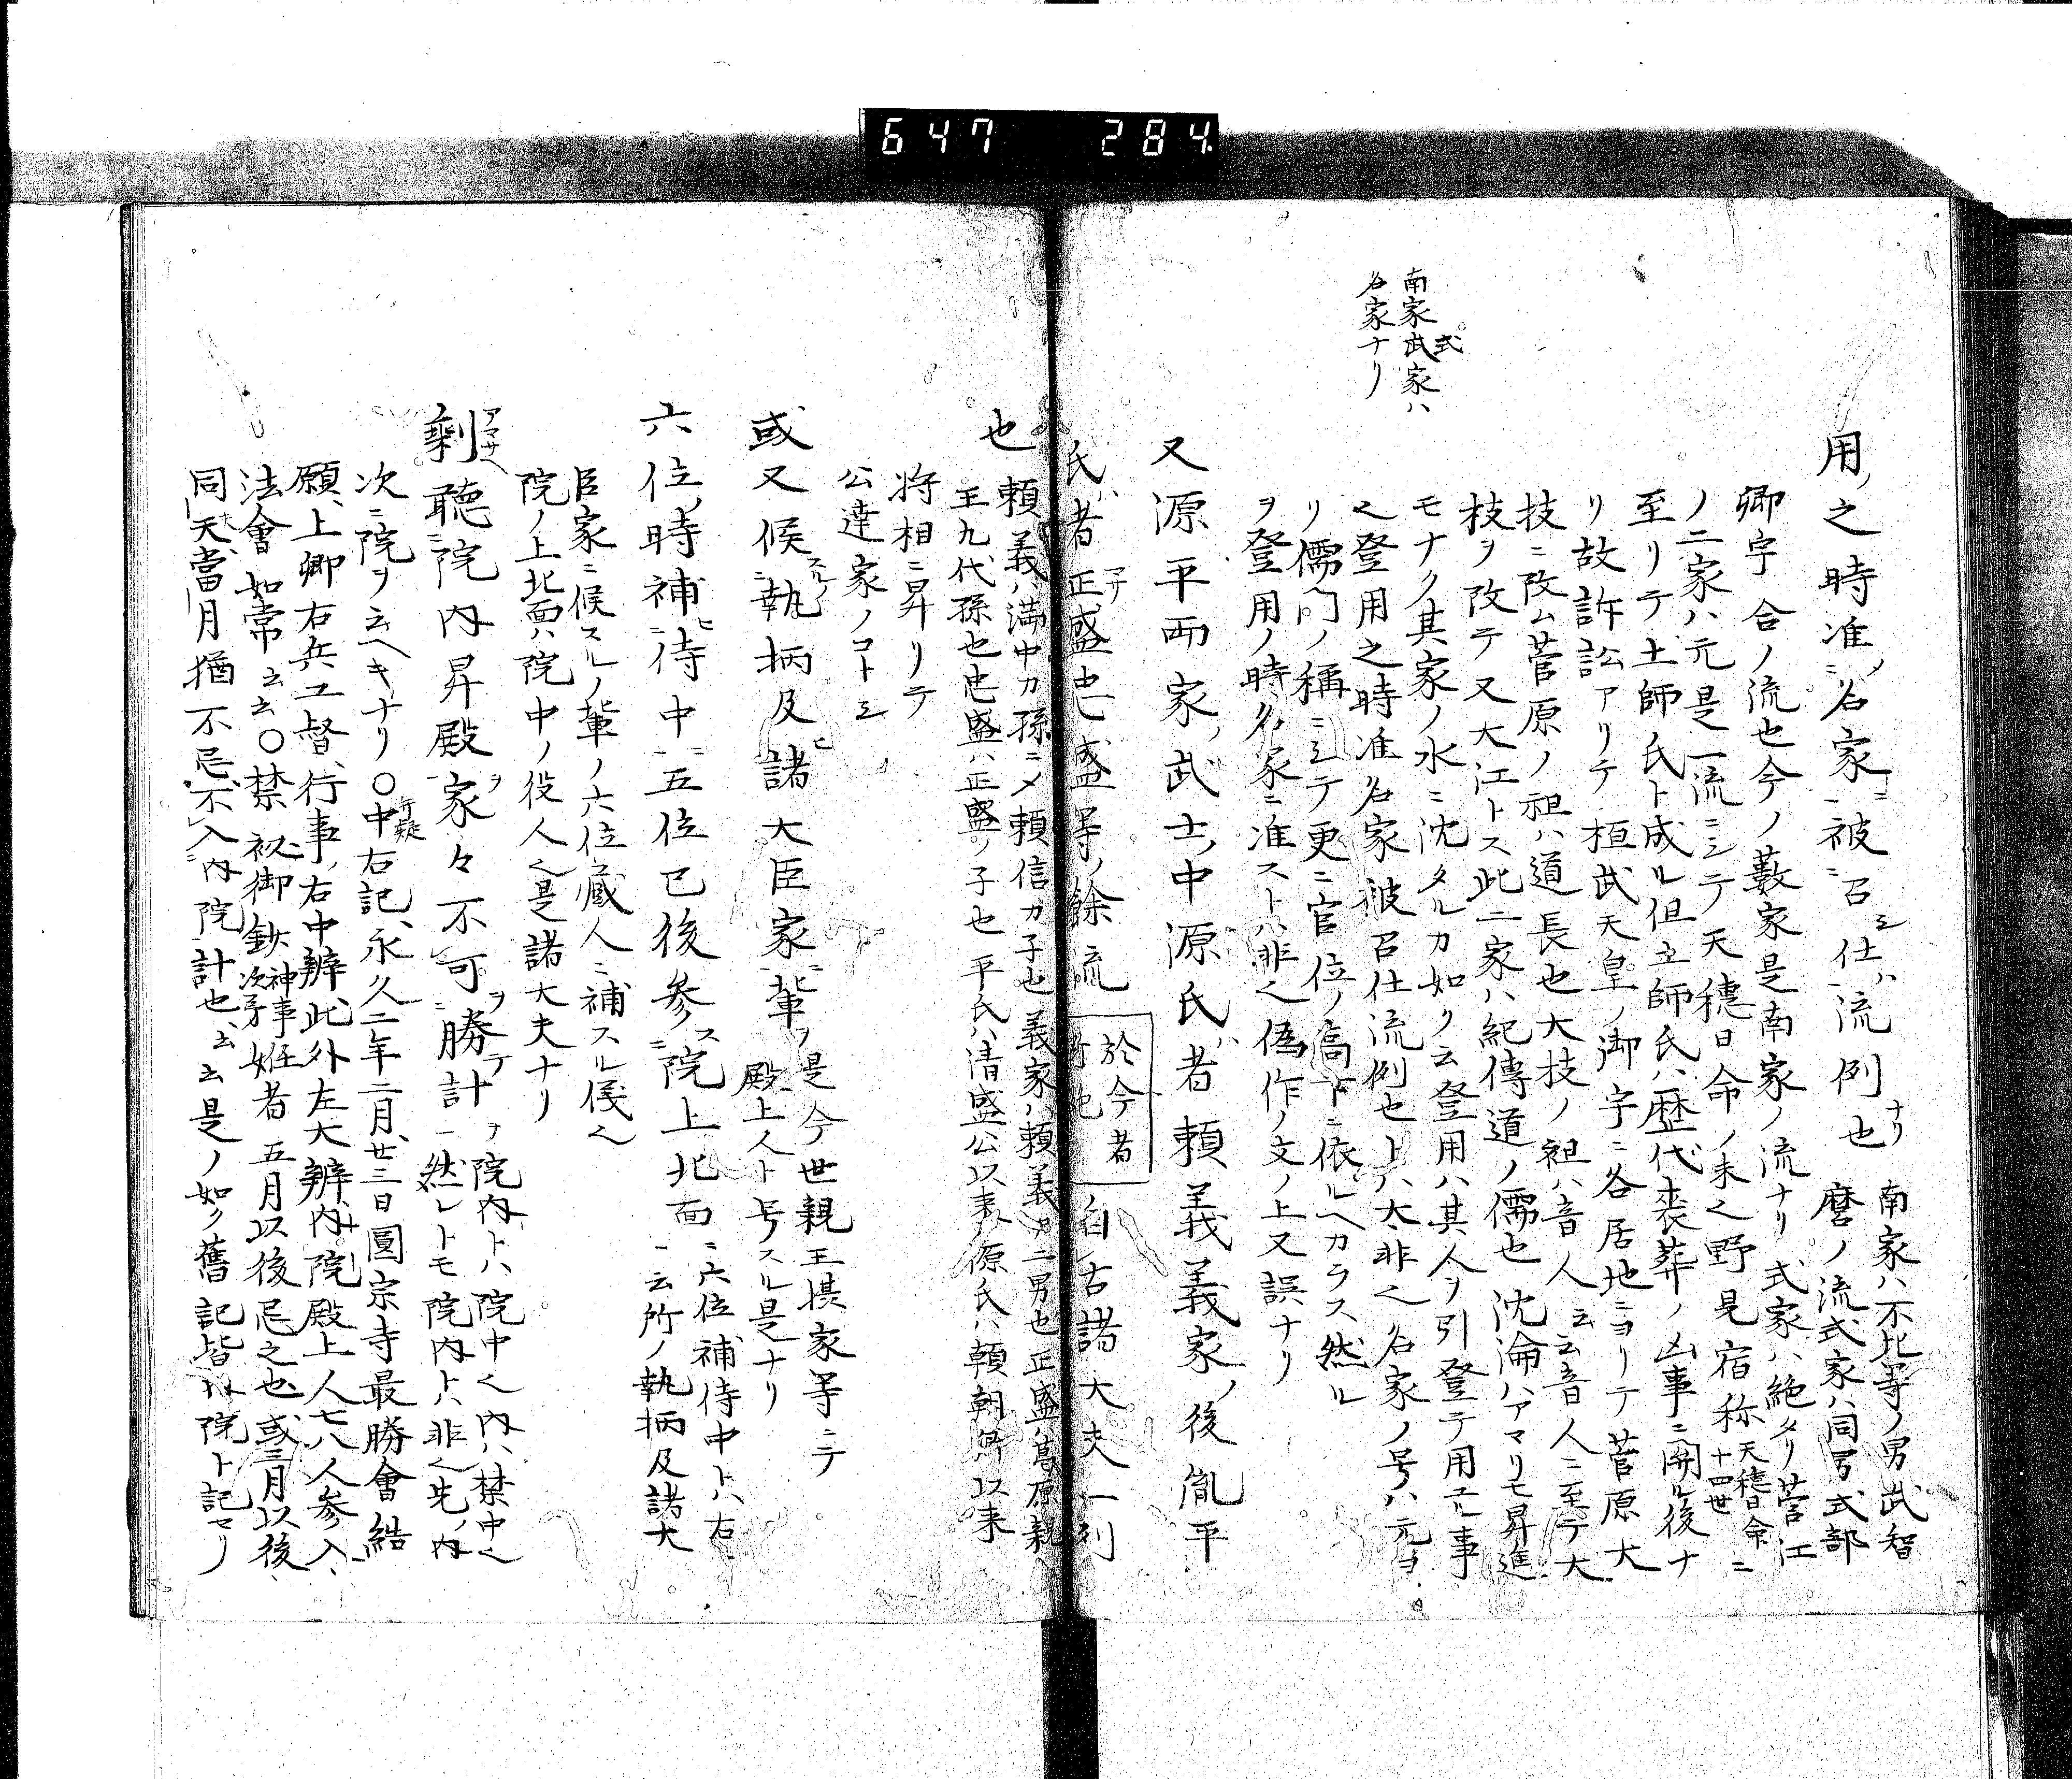 647 284
南家武家ハ
式
名家ナリ
用ノ之時准ニ名家ニ被召仕ハ流例也ナリ
南家ハ不比等ノ男武智
麿ノ流式家ハ同男式部
卿宇合ノ流也今ノ藪家是南家ノ流ナリ式家ハ絶タリ菅江
ノ二家ハ元是一流ニシテ天穂日命ノ末也野見宿祢天穂日命十四世ニ
至リテ土師氏ト成ル但土師氏ハ歴代喪葬ノ凶事ニ関ル後ナ
リ故訴訟アリテ桓武天皇ノ御宇ニ各居地ニヨリテ菅原大
枝ニ改ム菅原ノ祖ハ道長也大枝ノ祖ハ音人云云音人ニ至テ大
枝ヲ改テ又大江トス此二家ハ紀傳道ノ儒也沈淪ハアマリモ昇進
モナク其家ノ水ニ沈タルカ如クニ云登用ハ其人ヲ引登テ用ユル事
也登用之時准名家被召仕流例也上ハ大非也名家ノ号ハ元ヨ
リ儒門ノ稱ニシテ更ニ官位ノ高下ニ依ルヘカラス然ル
ヲ登用ノ時名家ニ准ストハ非也偽作ノ文ノ上又誤ナリ
又源平両家ノ武士ノ中源氏ハ者頼義義家ノ後胤平
氏ハ者正盛忠盛等ノ餘流
於今者
自古諸大夫一列
也
頼義ハ満中カ孫ニメ頼信カ子也義家ハ頼義カ二男也正盛ハ葛原親
王九代孫也忠盛ハ正盛ノ子也平氏ハ清盛公以来源氏ハ頼朝卿以来
将相ニ昇リテ
公達家ノコトシ
或又候スルノ執柄及ヒ諸大臣家ニ輩ヲ
是今世親王摂家等ニテ
殿上人ト号スル是ナリ
六位ノ時補ヒ侍中ニ五位已後参ス院ノ上北面ニ
六位補侍中トハ右
ニ云所ノ執柄及諸大
臣家ニ候スルノ輩ノ六位蔵人ニ補スル儀也
院ノ上北面ハ院中ノ役人也是諸大夫ナリ
剰アマサヘ聴院内昇殿ヲ家々不可ヲ勝テ計ニ
院内トハ院中也内ハ禁中也
然レトモ院内トハ非也先ノ内
次ニ院ヲ云ヘキナリ〇中右記、永久二年二月、廿三日圓宗寺最勝會結
願、上卿右兵衛督、行事、右中辨、此外左大辨、内院殿上人七八人参入、
法會如常云云〇禁秘御鈔神事次第妊者五月以後忌之也、或三月以後、
同天當月猶不忌、不入内院計也、云云是ノ如ク舊記皆内院ト記セリ